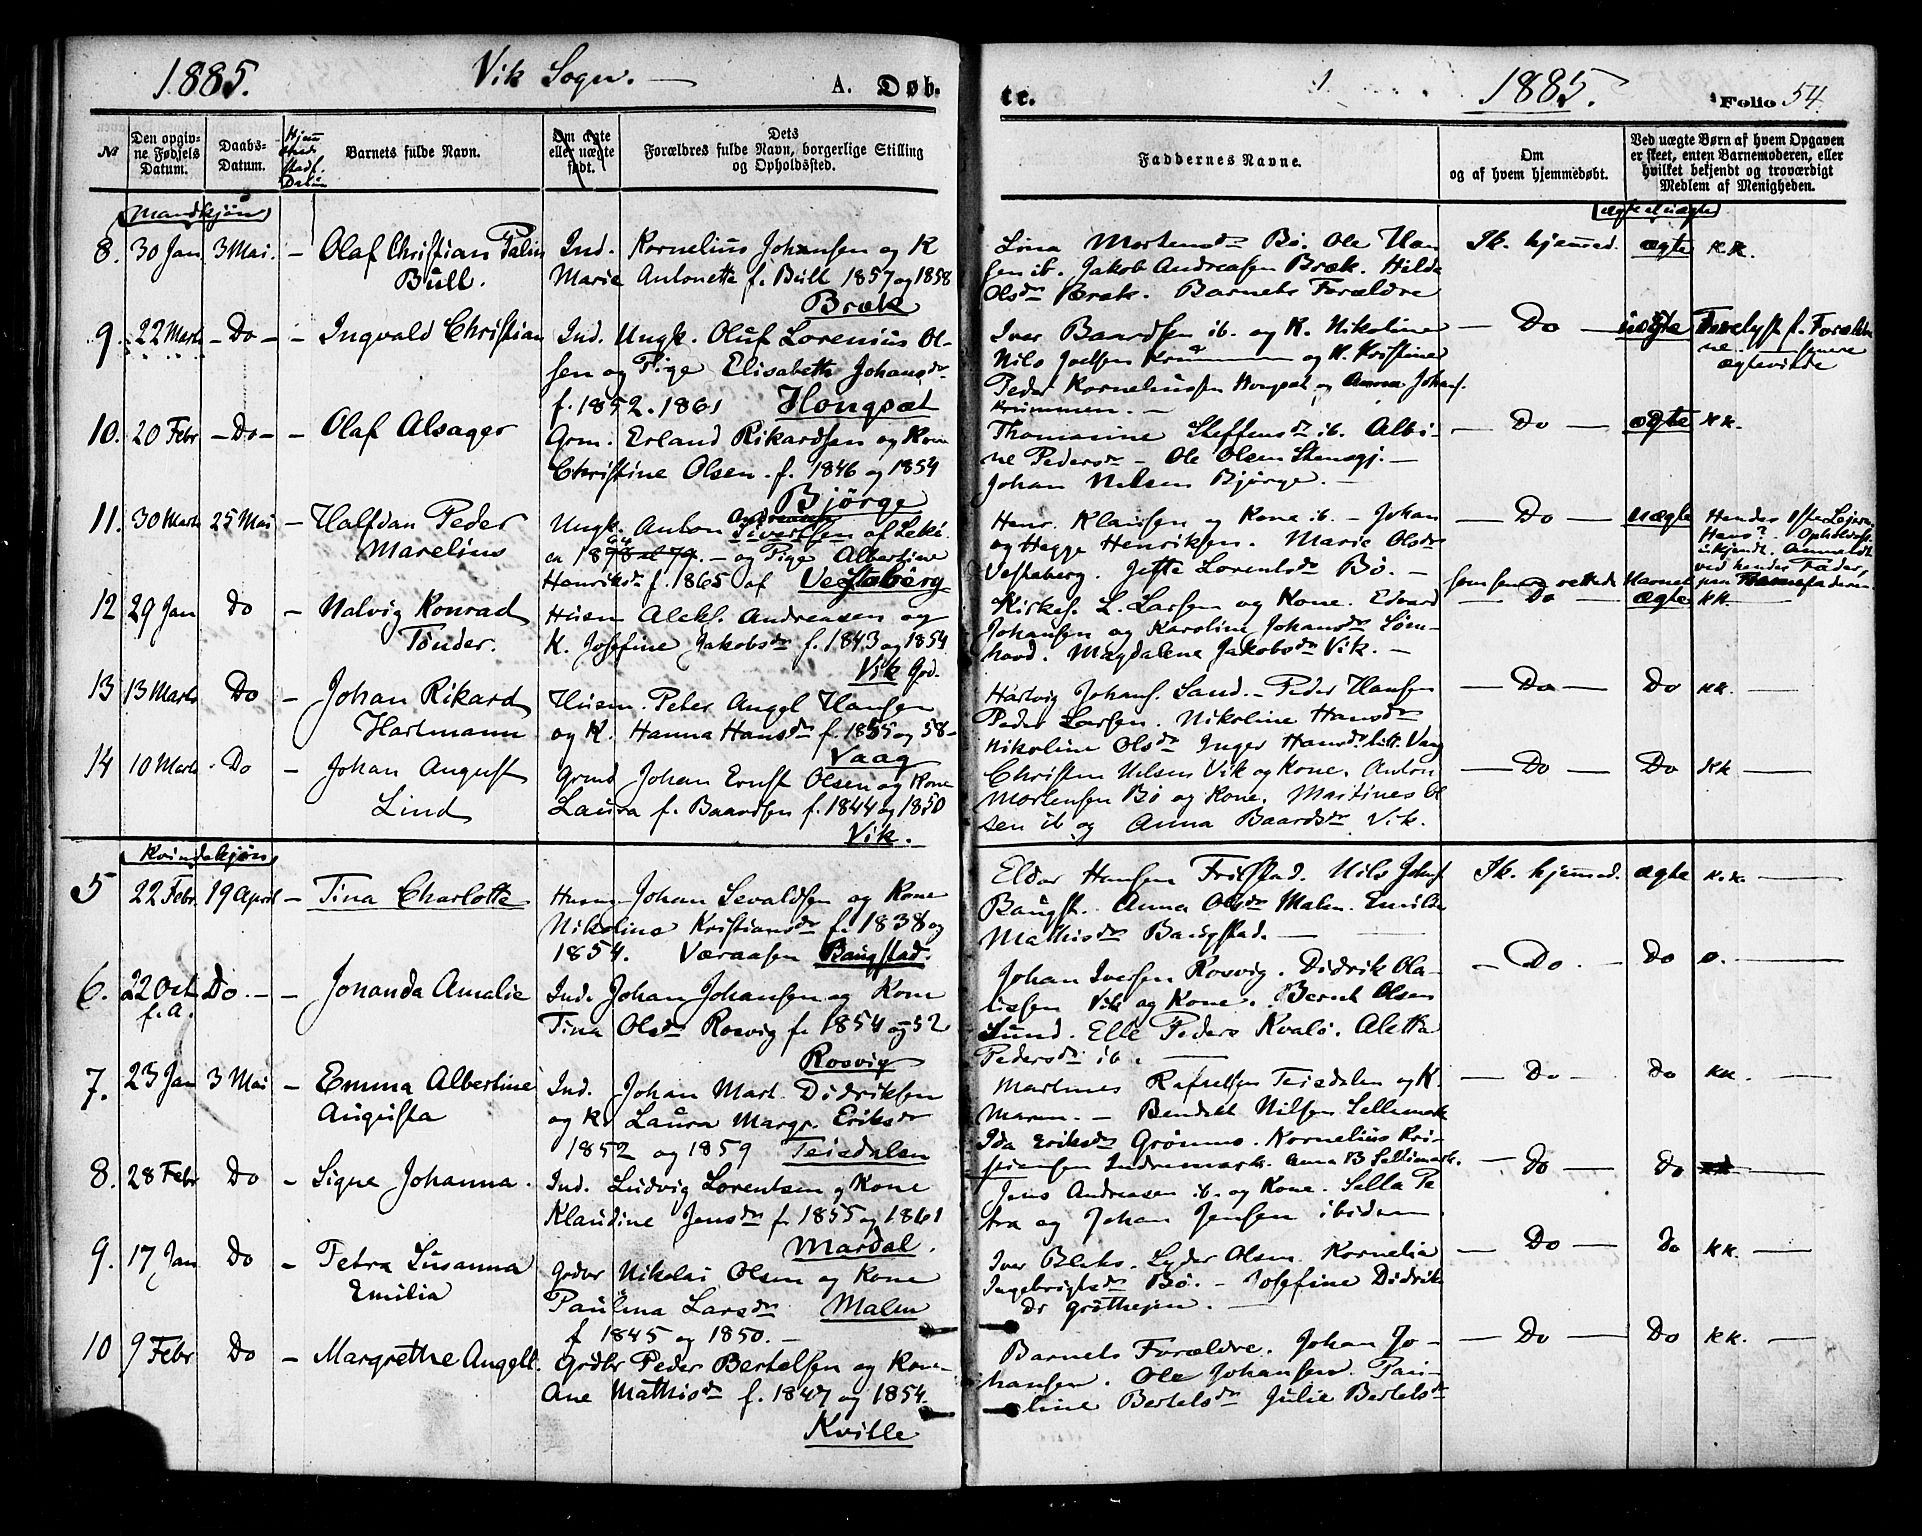 1885. Vik Sogn. — A. Døb-
te. 1885. Folio 54.
№
Den opgiv-
ne Fødsels
Datum.
Daabs-
Datum.
Barnets fulde Navn.
Om ægte
eller uægte
født.
Dets
Forældres fulde Navn, borgerlige Stilling
og Opholdssted.
Faddernes Navne.
Om
og af hvem hjemmedøbt.
Ved uægte Børn af hvem Opgaven
er skeet, enten Barnemoderen, eller
hvilket bekjendt og troværdigt
Medlem af Menigheden.
Mandkjøn
ægte el uægte
8. 30 Jan 3 Mai. — Olaf Christian Palin Ind. Kornelius Johansen og K
Bull. Marie Antonette f. Bull 1857 og 1858
Bræk
Lina Mortensdr Bø. Ole Han
sen ib. Jakob Andreasen Bræk. Hilda
Olsdr Bræk. Barnets Forældre
Ik. hjemmed. ægte kk.
9. 22 Marts — Do — — Ingvald Christian Ind. Ungk. Oluf Lorenius Ol-
sen og Pige Elisabeth Johansdr
f. 1852. 1861 Hongsæt
Iver Baardsen ib. og K. Nikoline
Nils Joelsen Krummen og K. Kristine
Peder Kornelussen Hongsæt og Anna Johans.
Krummen. —
— Do — uægte Trolyst f. Foræld
ne. senere
ægteviede
10. 20 Febr — Do — — Olaf Alsager Grm. Erland Rikardsen og Kone
Christine Olsen. f. 1846 og 1854
Bjørge
Thomasine Steffensdr ib. Albi-
ne Pedersdr — Ole Olsen Stensgj. —
Johan Nilsen Bjørge. —
— Do — ægte kk.
11. 30 Marts 25 Mai — Halfdan Peder Ungk. Anton Sivertsen af Lekø
Marelius — og Pige Albertine
Henriksdr f. 1865 af Vestaberg
Henr. Klausen og Kone ib. — Johan
og Hegge Henriksen. Marie Olsdr
Vestaberg. Jette Lorentsdr Bø. —
— Do — uægte Hendes
ukjendt. Anmeldt
ved hendes Fader,
12 29 Jan Do — Nalvig Konrad Husm Aleks. Andreasen og
Tønder. K. Josefine Jakobsdr f. 1843 og 1854
Vik God.
Kirkes. L. Larsen og Kone. Edvard
Johansen og Karoline Johansdr Søm-
hovd. Magdalena Jakobsdr Vik. —
— Do — ægte kk. —
13 13 Marts Do — Johan Rikard Husm. Peter Angel Hansen
Hartmann og K. Hanna Hansdr f. 1855 og 58 —
Vaag
Hartvig Johans. Sand. — Peder Hansen
Peder Larsen. Nikoline Hansdr
Nikoline Olsdr Inger Hansdr till. Vaag
— Do — Do kk. —
14 10 Marts Do — Johan August Grmd Johan Ernst Olsen og Kone
Lind Laura f. Baardsen f. 1844 og 1850
Vik.
Christen Nilsen Vik og Kone. Anton
Mortensen Bø og Kone. Martines Ol
sen ib og Anna Baardsdr Vik.
— Do — Do kk —
Kvindekjøn
5 22 Febr. 19 April — Tina Charlotte Husm Johan Sevaldsen og Kone
Nikoline Kristiansdr f. 1838 og
1854. Væraasen Baugstad.
Eldor Hansen Frilstad. Nils Johns
Baugst. Anna Olsdr Malm. Emilie
Mathisdr Baugstad. —
Ik. hjemmed. ægte k.k. —
6. 22 Oct f. A. Do. — — Jonanda Amalie Ind. Johan Johansen og Kone
Tina Olsdr Rosvig f. 1854 og 52
Rosvig
Johan Iversen Rosvig. Didrik Ola-
issen Vik og Kone. Bernt Olsen
Lund. Elle Peders Kvalø. Aletta
Pedersdr ib. —
— Do — Do o. —
7. 23 Jan 3 Mai — Emma Albertine Ind. Johan Mart. Didriksen
Augusta og K. Laura Margr. Eriksdr
1852 og 1859 Teisdalen
Martines Rafaelsen Teisdalen og K.
Maren. — Bendikt Nilsen Sellemark
Ida Eriksdr Grønmo. Kornelius Kri-
stensen Indremark. Anna B Sellimark.
— Do — Do kk. —
8. 28 Febr Do — Signe Johanna. Ind. Ludvig Lorentsen og Kone
Klaudine Jensdr f. 1855 og 1861
Mardal.
Jens Andreasen ib. og Kone. Sella Pe
tra og Johan Jensen ibidem
— Do — Do —
9. 17 Jan Do — Petra Susanna Grdbr Nikolai Olsen og Kone
Emilia Paulina Larsdr Malm
f 1845 og 1850. —
Iver Bleks. Lyder Olsen. Kornelia
Ingebrigtsdr Bø. — Josefine Didrik
Dr Grøthejen. —
— Do — Do kk. —
10 9 Febr Do — Margrethe Angell. Grdbr Peder Bertelsen og Kone
Ane Mathisdr f. 1847 og 1854
Kville
Barnets Forældre. Johan Jo-
hansen. Ole Johansen. Pau-
line Bertelsdr Julie Bertelsdr
— Do — Do kk. —